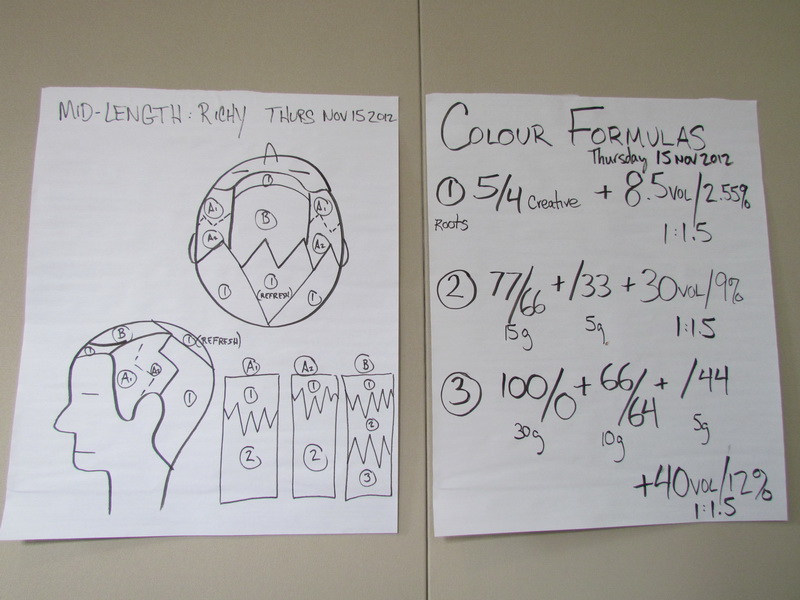 MID-LENGTH: RICHY THURS NOV 15 2012
1
A1 B A1
A2 A2
1 1 (REFRESH) 1
B 1 (REFRESH)
1 A1 A2 1
A1 A2 B
1 1 1
2
2 2 3
COLOUR FORMULAS
Thursday 15 NOV 2012
1 5/4 Creative + 8.5 VOL/2.55%
Roots 1:1.5
2 77/66 + /33 + 30 VOL/9%
15g 5g 1:1.5
3 100/0 + 66/64 + /44
30g 10g 5g
+40 VOL/12%
1:1.5